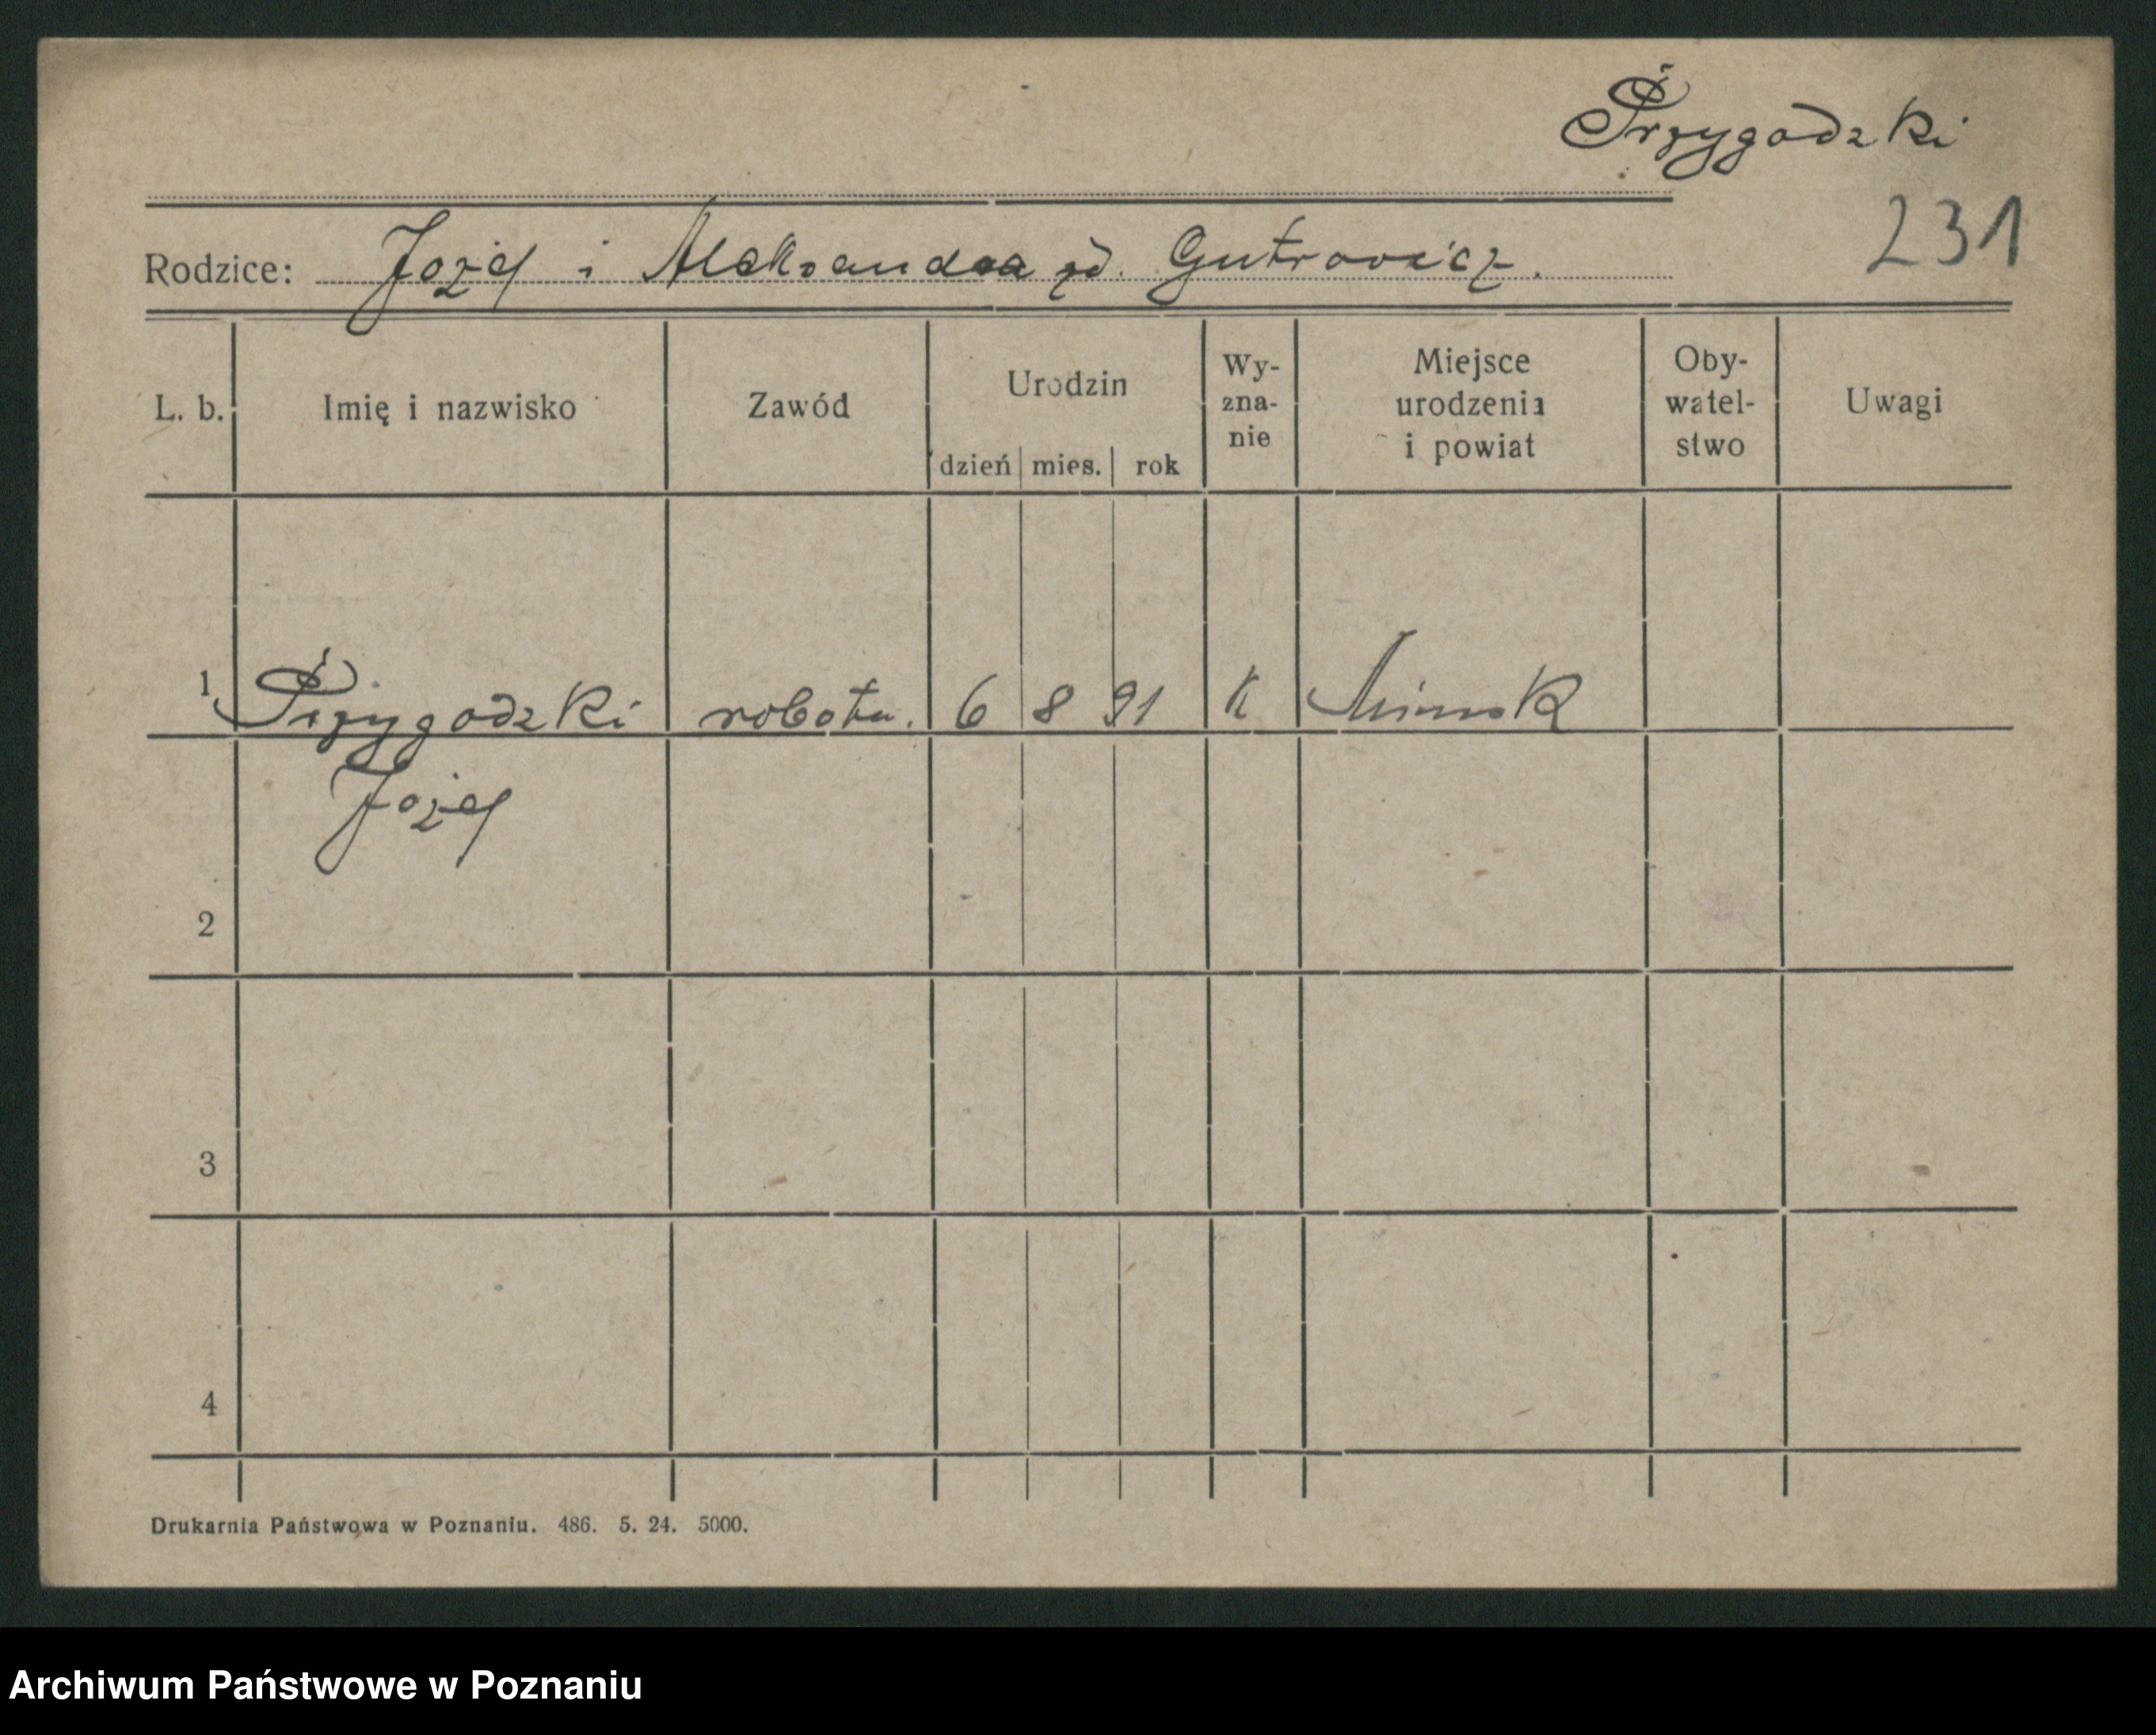 Przygodzki
231
Rodzice: Józef i Aleksandra zd. Gutrowicz.
L. b. Imię i nazwisko Zawód Urodzin dzień mies. rok Wy-zna-nie Miejsce urodzenia i powiat Oby-watel-stwo Uwagi
1 Przygodzki robotn. 6 8 91 k Minsk
Józef
2
3
4
Drukarnia Państwowa w Poznaniu. 486. 5. 24. 5000.
Archiwum Państwowe w Poznaniu